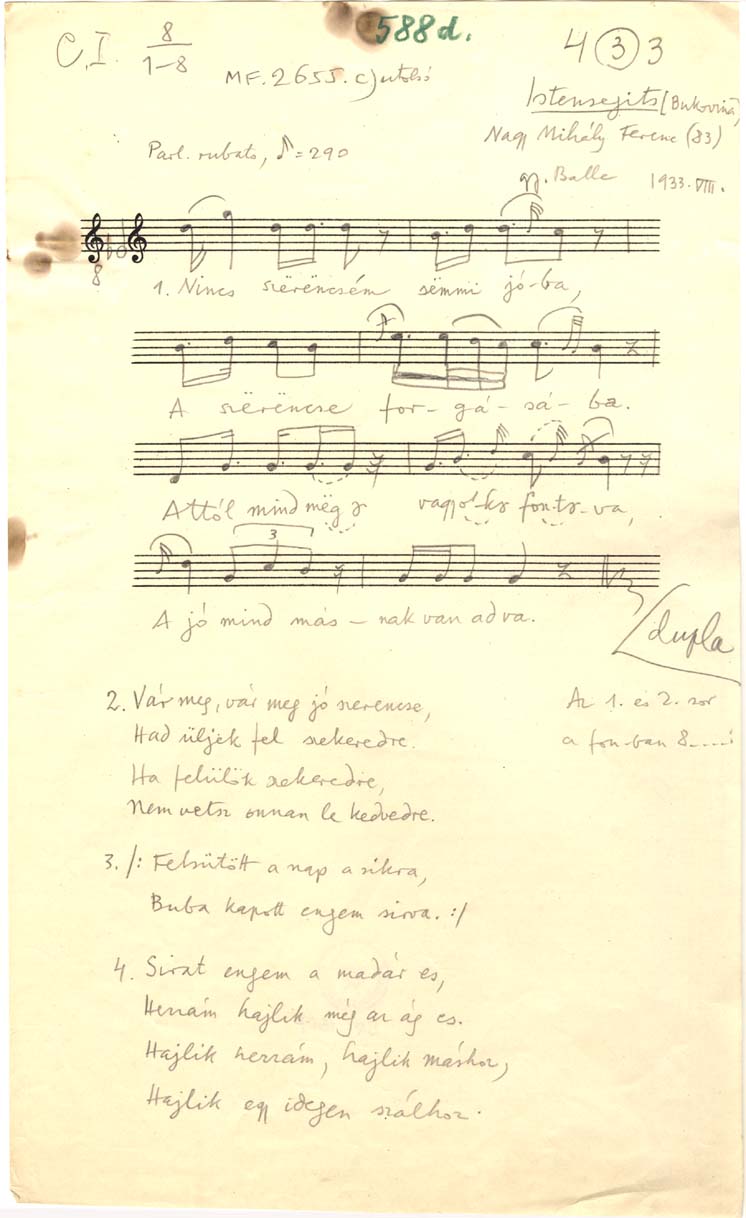 588d.
C.I. 8/1-8
4 3 3
MF. 2655. c) utolsó
Istensegits [Bukovina]
Nagy Mihály Ferenc (83)
Parl. rubato, ♪=290
gy. Balla 1933. VIII.
8
1. Nincs szërëncsém sëmmi jó-ba,
A szërëncse for-gá-sá-ba.
Attól mind mëg
3
A jó mind más-nak van adva.
dupla
2. Vár meg, vár meg jó szerencse,
Az 1. és 2. sor
Had üljek fel szekeredre.
a fon-ban 8
Ha felülök szekeredre,
Nem vetsz onnan le kedvedre.
3. /: Felsütött a nap a síkra,
Buba kapott engem sirva. :/
4. Sirat engem a madár es,
Hezzám hajlik még az ág es.
Hajlik hezzám, hajlik máshoz,
Hajlik egy idegen szálhoz.